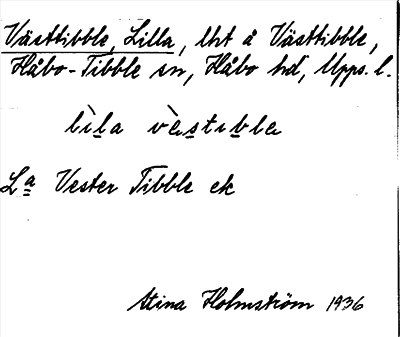 Västtibble, Lilla, lht å Västtibble,
Håbo-Tibble sn, Håbo hd, Upps. l.
lìla vàstibla
La Vester Tibble ek
Stina Holmström 1936